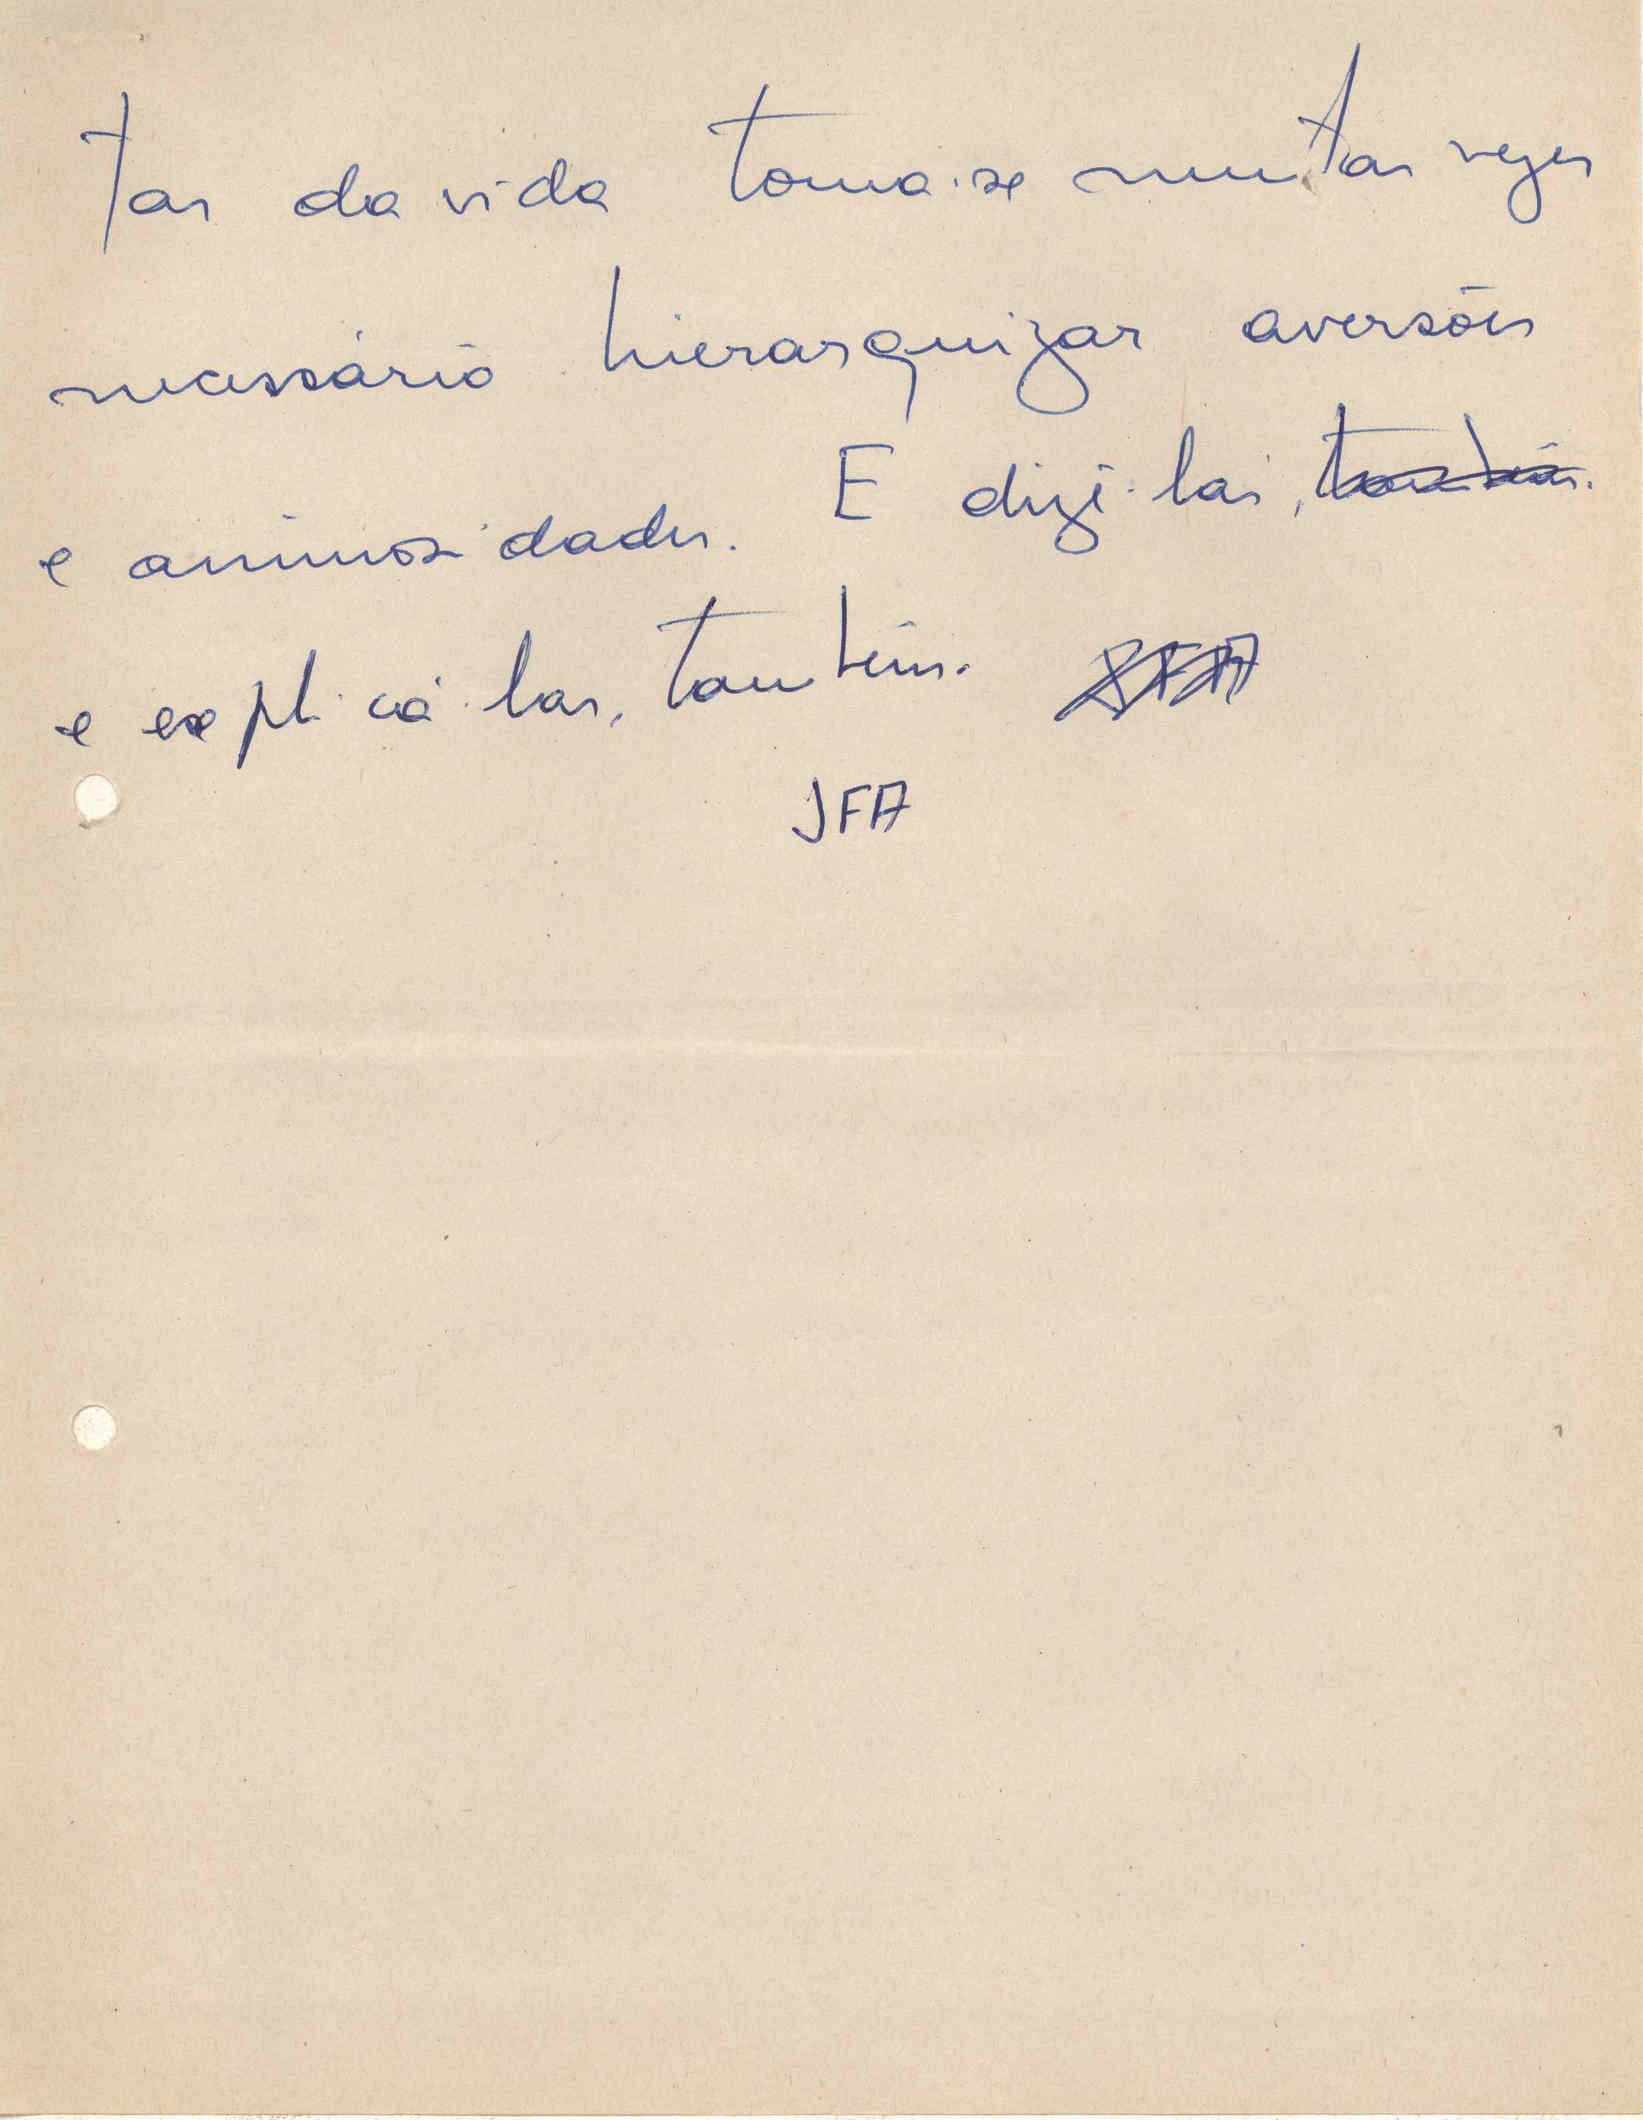 tas da vida torna-se muitas vezes
necessário hierarquizar aversões
e animosidades. E dizê-las, também.
e explicá-las, também. JFA
JFA